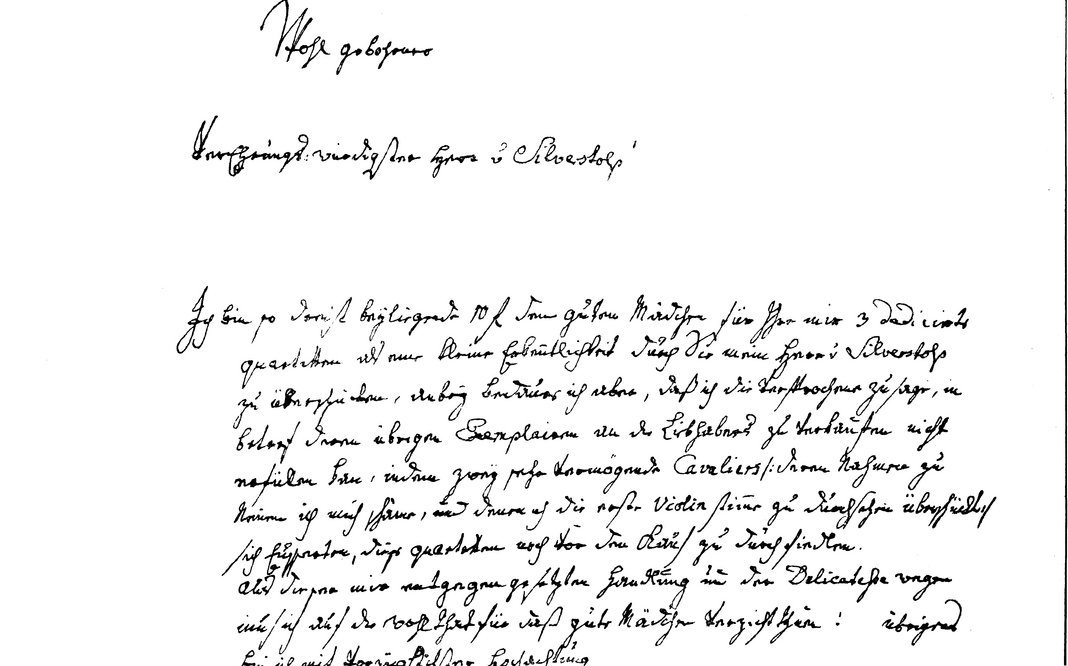 Wohl gebohrner
Verehrungs: würdigster Herr v Silverstolp
Ich bin so dreist beÿliegende 10 f dem guten Mädchen für Ihre mir 3 dedicirte
quartetten als eine kleine Erkentlichkeit durch Sie mein Herr v Silverstolp
zu überschicken, anbeÿ bedaure ich aber, daß ich die Versprochene zusage, in
betref deren übrigen Exemplairen an die Liebhabers zu Verkaufen nicht
erfüllen kan, indem zweÿ sehr Vermögende Cavaliers /: deren Nahmen zu
Nennen ich mich schäme, und denen ich die erste Violin stimme zu durchsehen überschückte /
sich Eusserten, diese quartetten noch Vor den Kauf zu durchfiedlen.
Aus dieser mir entgegen gesetzten Handlung und der Delicatesse wegen
mus ich auf die wohlthat für daß gute Mädchen Verzicht thun ! übrigens
bin ich mit Vorzüglichster hochachtung